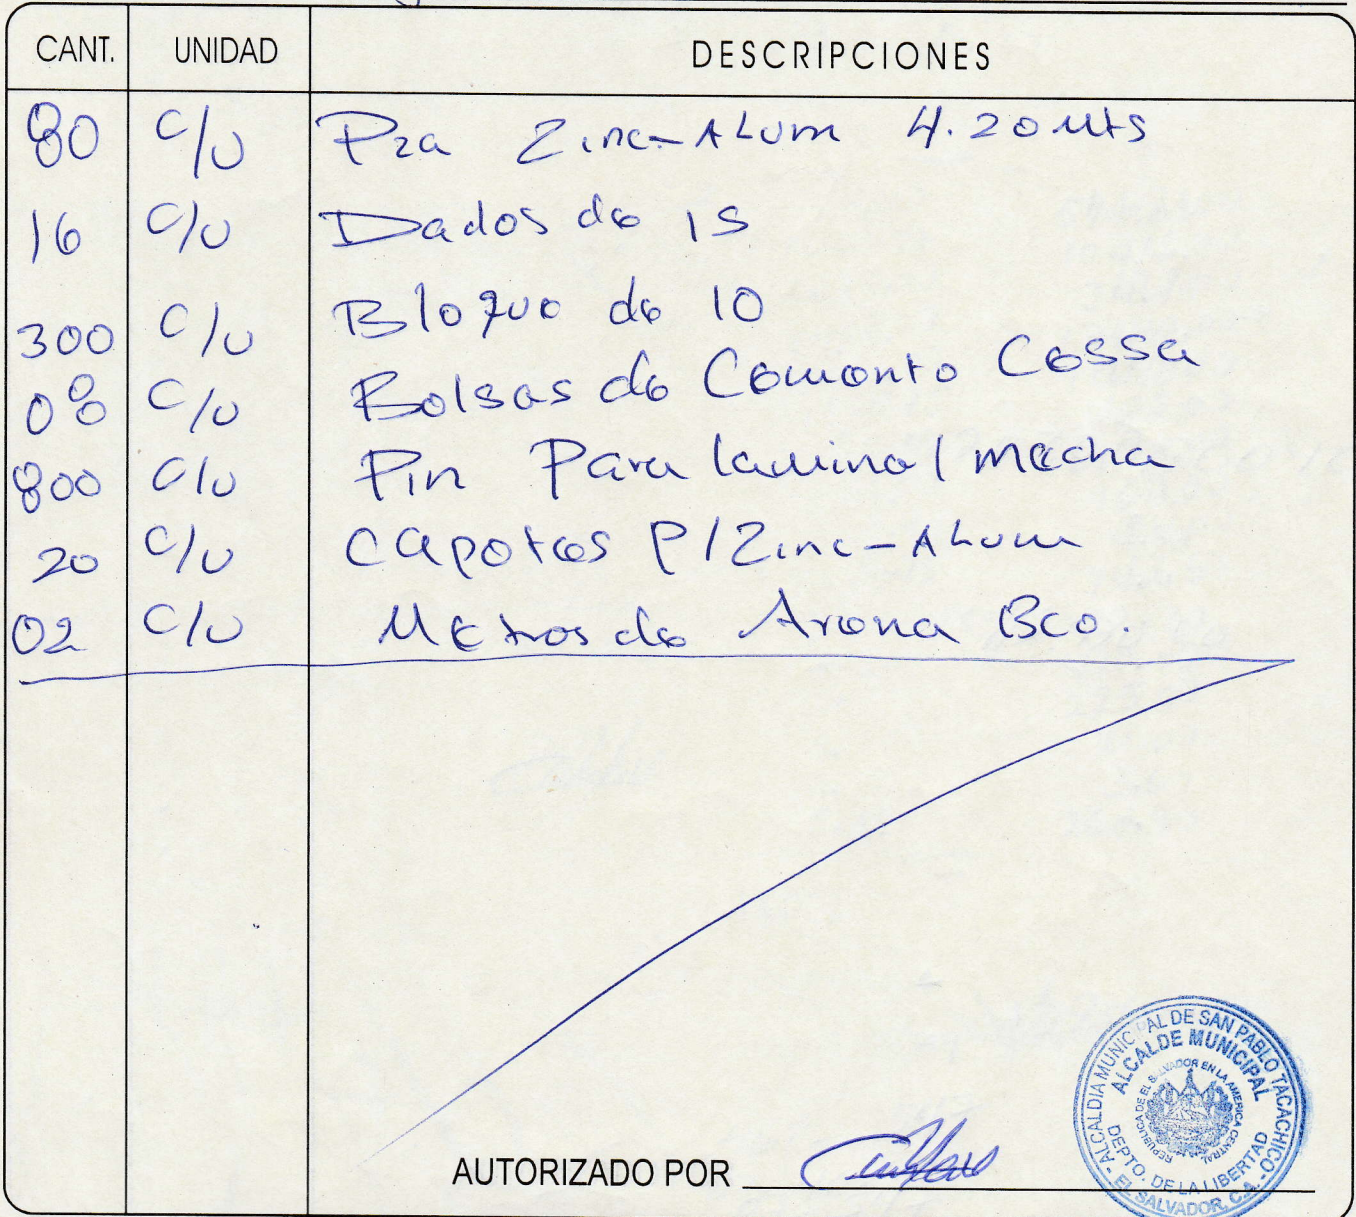 CANT. UNIDAD DESCRIPCIONES
80 c/u Pza Zinc-Alum 4.20 Mts
16 c/u Dados de 15
300 c/u Bloque de 10
08 c/u Bolsas de Cemento Cessa
800 c/u Pin Para lamina/mecha
20 c/u Capotes P/Zinc-Alum
02 c/u Metros de Arena Bco.
AUTORIZADO POR
ALCALDIA MUNICIPAL DE SAN PABLO TACACHICO
ALCALDE MUNICIPAL
REPUBLICA DE EL SALVADOR EN LA AMERICA CENTRAL
DEPTO. DE LA LIBERTAD
EL SALVADOR, C.A.